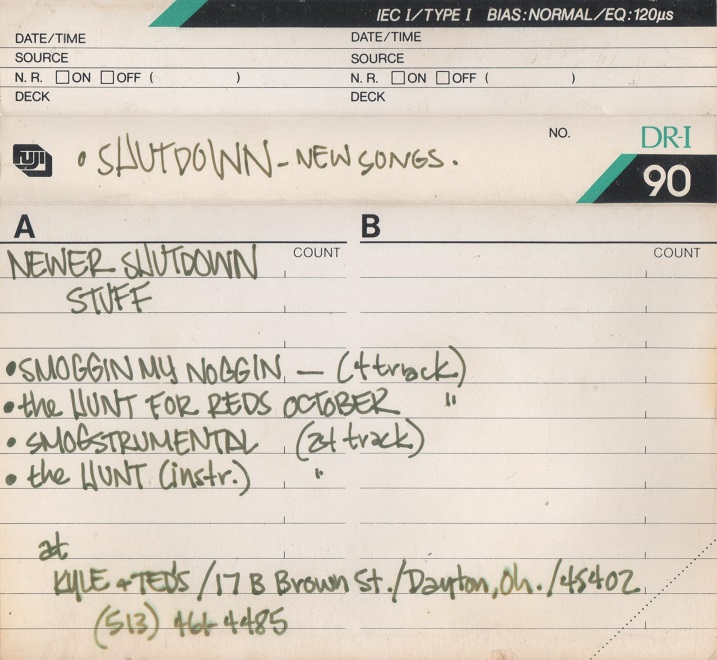 IEC I/TYPE I BIAS:NORMAL/EQ:120µs
DATE/TIME DATE/TIME
SOURCE SOURCE
N. R. □ON □OFF ( ) N. R. □ON □OFF ( )
DECK DECK
FUJI • SHUTDOWN - NEW SONGS. NO. DR-I
90
A B
COUNT COUNT
NEWER SHUTDOWN
STUFF
• SMOGGIN MY NOGGIN — (4 track)
• the HUNT FOR REDS OCTOBER "
• SMOGSTRUMENTAL (24 track)
• the HUNT (instr.) "
at
KYLE + TED'S / 17 B Brown St. / Dayton, Oh. / 45402
(513) 461-4485